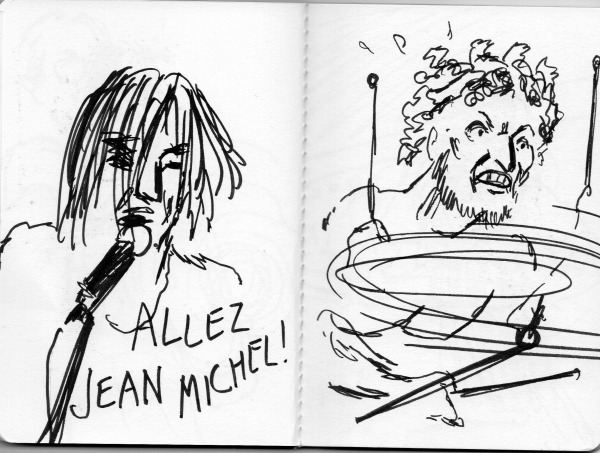 ALLEZ
JEAN MICHEL!